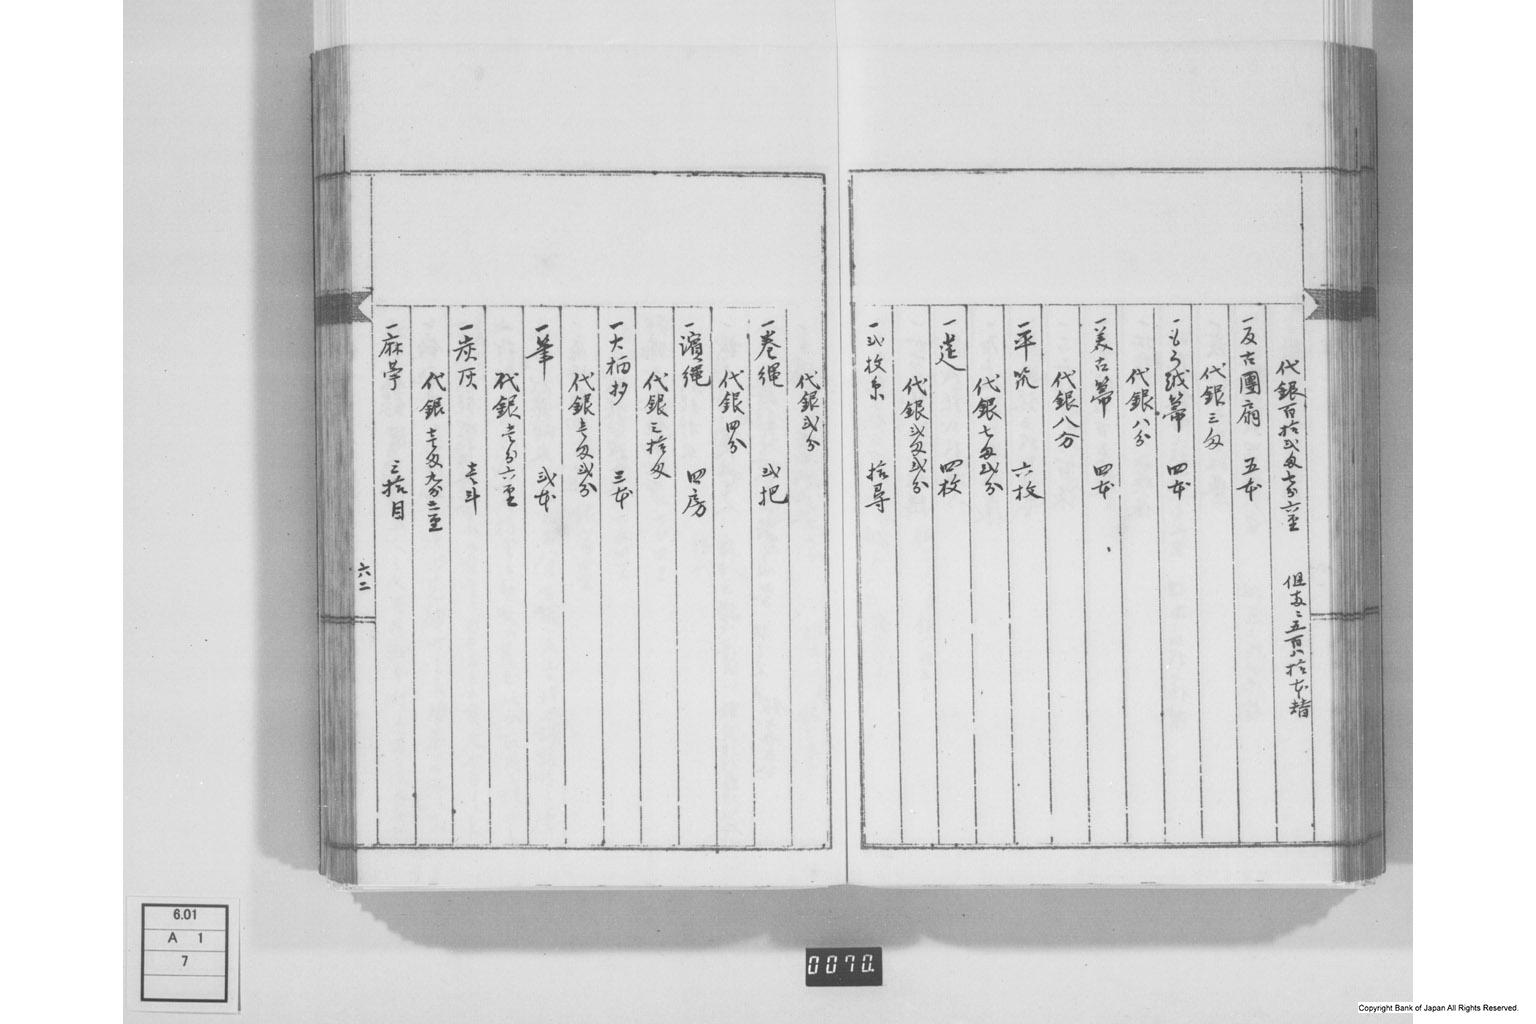 代銀百拾弐匁七分六厘 但壱ニ五百八拾本替
一反古團扇 五本
代銀三匁
一もうせん箒 四本
代銀八分
一美古箒 四本
代銀八分
一平笊 六枚
代銀七匁弐分
一莚 四枚
代銀弐匁弐分
一弐枚糸 拾尋
代銀弐分
一巻縄 弐把
代銀四分
一濱縄 四房
代銀三拾匁
一大柄杓 三本
代銀壱匁弐分
一筆 弐本
代銀壱分六厘
一炭灰 壱斗
代銀壱匁九分二厘
一麻苧 三拾目
六二
6.01
A 1
7
0070.
Copyright Bank of Japan All Rights Reserved.